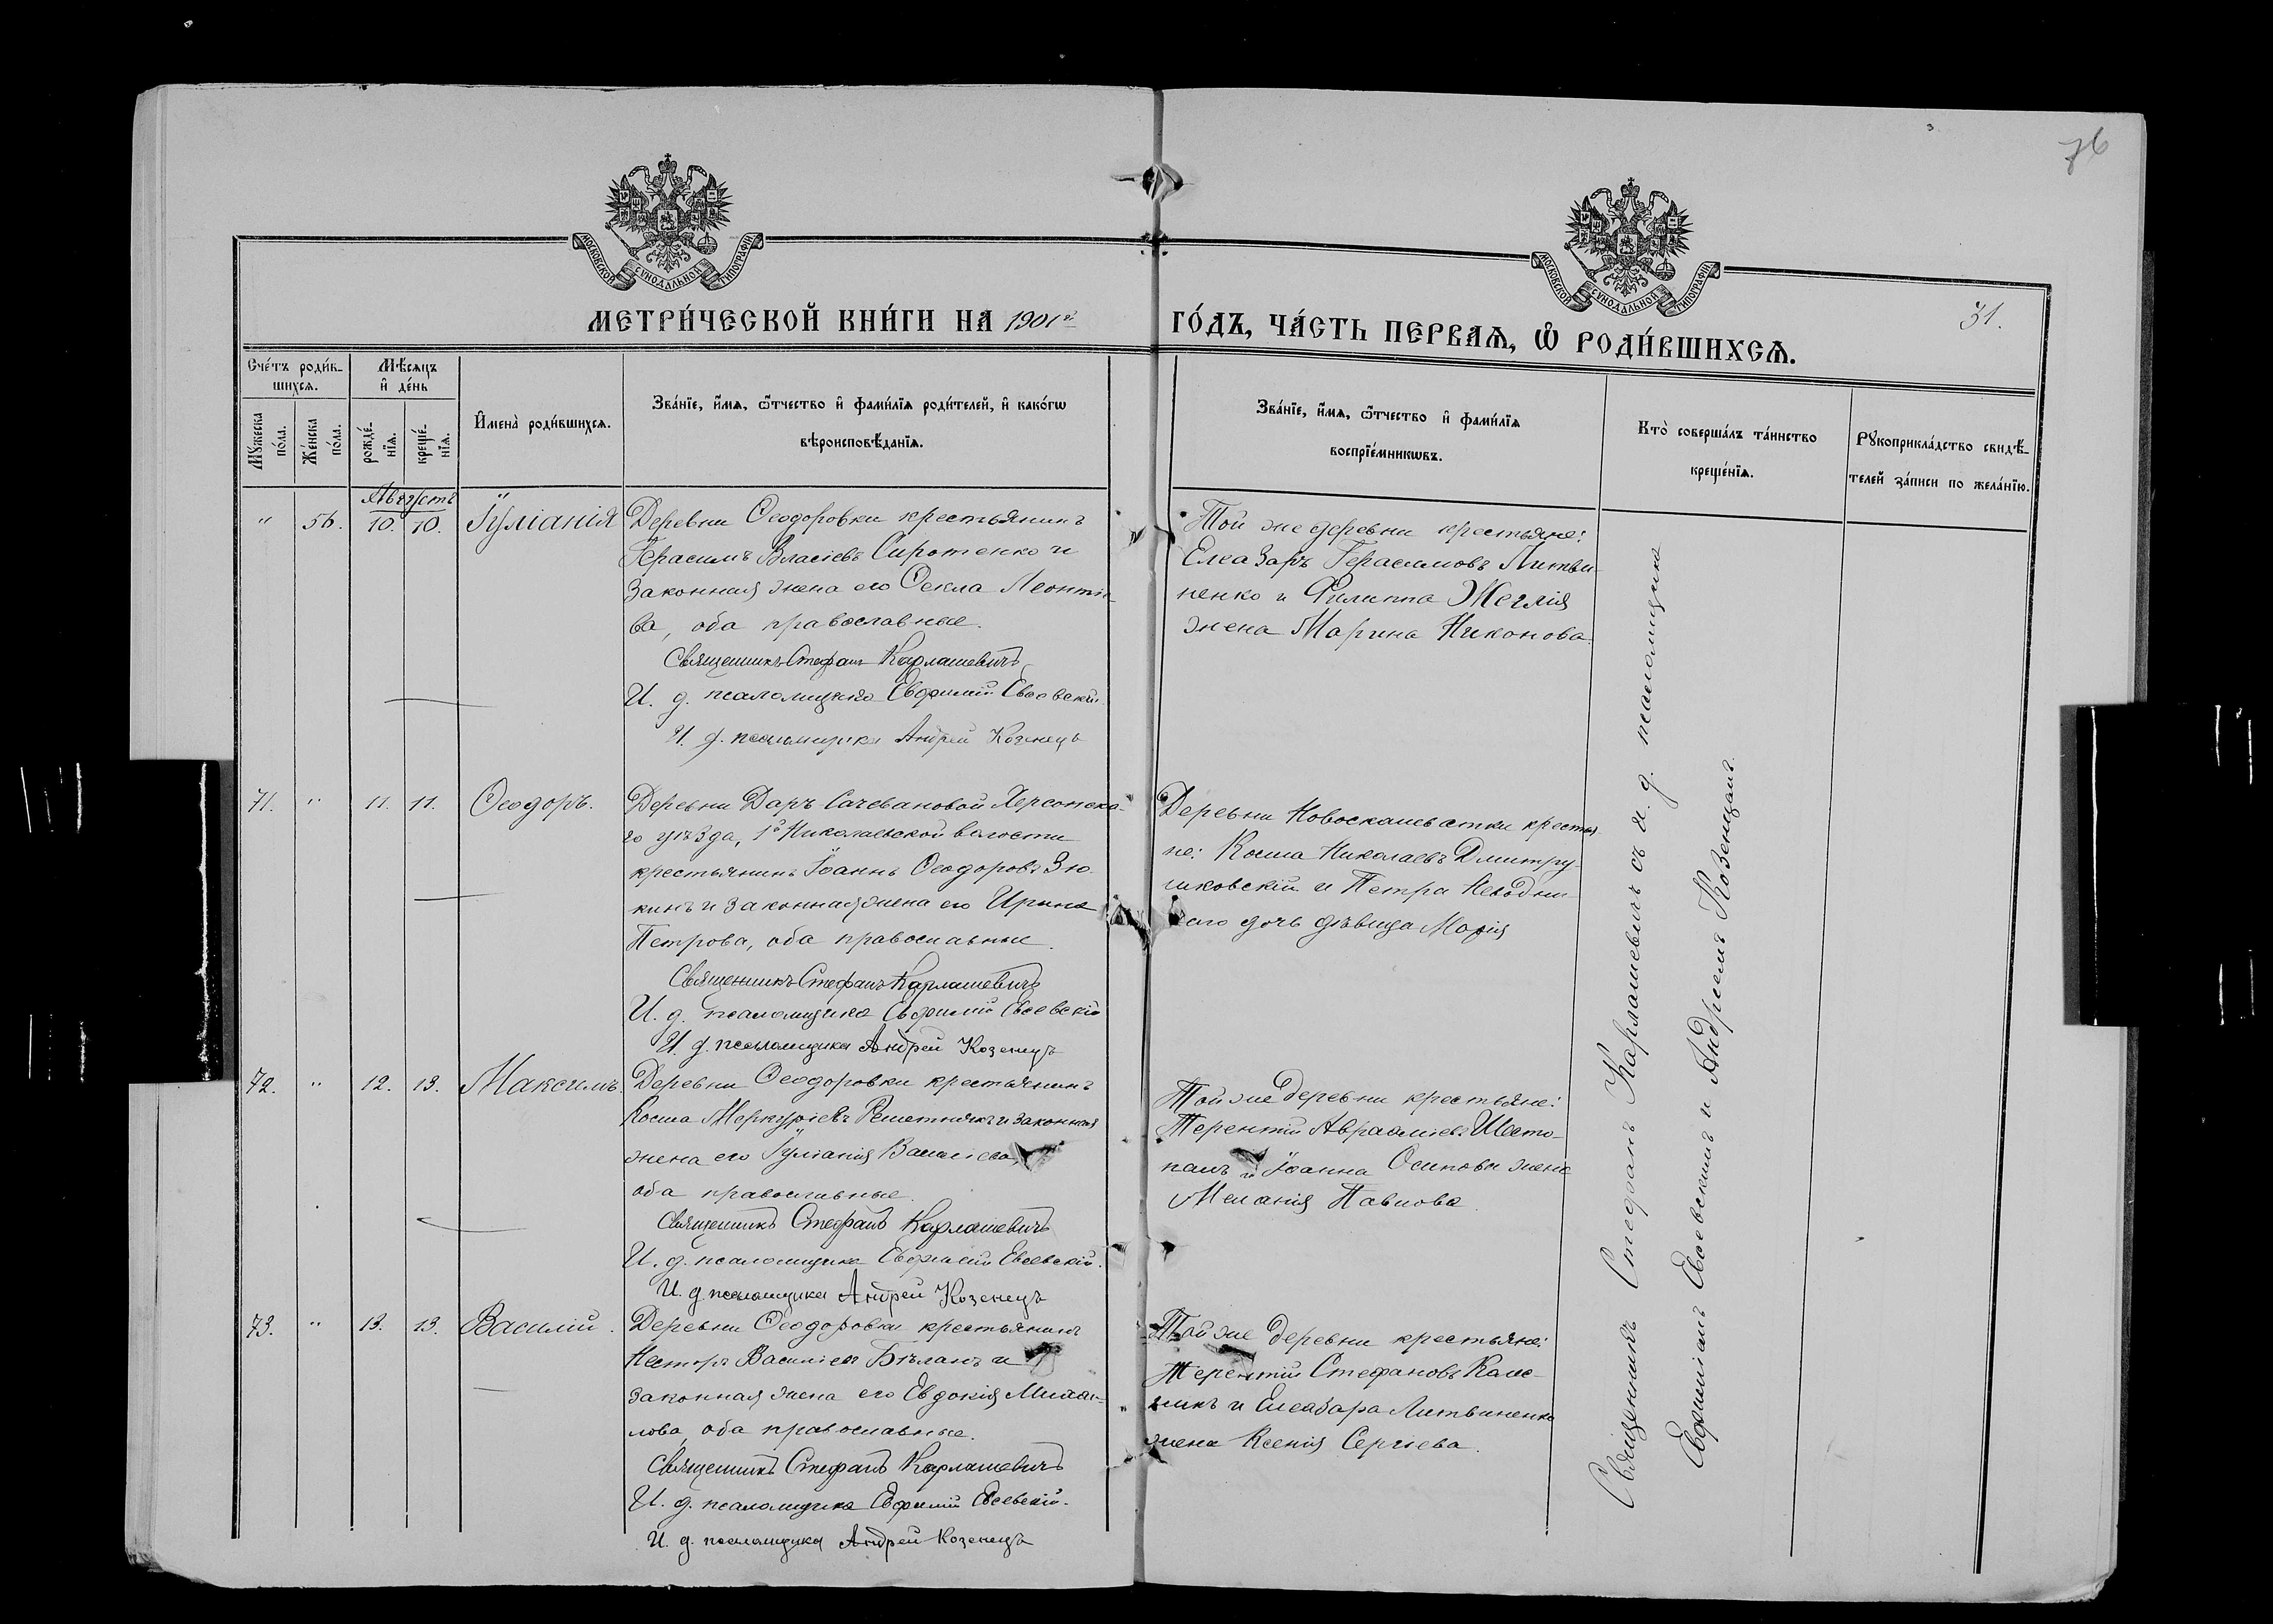 76
МОСКОВСКОЙ СѴНОДАЛЬНОЙ ТИПОГРАФІИ
МОСКОВСКОЙ СѴНОДАЛЬНОЙ ТИПОГРАФІИ
МЕТРИ́ЧЕСКОЙ КНИ́ГИ НА 1901й ГО́ДЪ, ЧА́СТЬ ПЕРВАѦ, Ѡ҆ РОДИ́ВШИХСѦ.
31.
Сче́тъ роди́в-
шихсѧ.
Мѣ́сѧцъ
и҆ де́нь
Мꙋ́жеска по́ла.
Же́нска по́ла.
рожде́-
нїѧ.
креще́-
нїѧ.
И҆мена̀ роди́вшихсѧ.
Зва́нїе, и҆́мѧ, ѻ҆́тчество и҆ фами́лїѧ роди́телей, и҆ како́гѡ
вѣроисповѣ́данїѧ.
Зва́нїе, и҆́мѧ, ѻ҆́тчество и҆ фами́лїѧ
воспрїе́мникѡвъ.
Кто̀ соверша́лъ та́инство
креще́нїѧ.
Рꙋкоприкла́дство свидѣ́-
телей за́писи по жела́нїю.
Августъ
" 56. 10. 10. Іуліанія
Деревни Ѳеодоровки крестьянинъ
Герасимъ Власіевъ Сиротенко и
законная жена его Ѳекла Леонтіе-
ва, оба православные.
Священникъ Стефанъ Карлашевичъ
И. д. псаломщика Евфимій Евсевскій
И. д. псаломщика Андрей Козенецъ
Той же деревни крестьяне:
Елеазаръ Герасимовъ Литви
ненко и Филиппа Жеглія
жена Марина Никонова.
71. " 11. 11. Ѳеодоръ.
Деревни Даръ Сачевановой Херсонска-
го уѣзда, 1й Николаевской волости
крестьянинъ Іоаннъ Ѳеодоровъ Зю
кинъ и законная жена его Ирина
Петрова, оба православные.
Священникъ Стефанъ Карлашевичъ
И. д. псаломщика Евфимій Евсевскій
И. д. псаломщика Андрей Козенецъ
Деревни Новоскалеватки крестья
не: Косма Николаевъ Дмитру-
шковскій и Петра Неводни
чаго дочь дѣвица Марія
72. " 12. 13. Максимъ.
Деревни Ѳеодоровки крестьянинъ
Косма Меркуріевъ Решетнякъ и законная
жена его Іуліанія Василіева,
оба православные.
Священникъ Стефанъ Карлашевичъ
И. д. псаломщика Евфимій Евсевскій.
И. д. псаломщика Андрей Козенецъ
Той же деревни крестьяне:
Терентій Аврааміевъ Шесто-
палъ и Іоанна Осипова жена
Меланія Павлова.
73. " 13. 13. Василій.
Деревни Ѳеодоровки крестьянинъ
Несторъ Василіевъ Бѣланъ и
законная жена его Евдокія Михаи-
лова, оба православные.
Священникъ Стефанъ Карлашевичъ
И. д. псаломщика Евфимій Евсевскій.
И. д. псаломщика Андрей Козенецъ
Той же деревни крестьяне:
Терентій Стефановъ
и Елеазара Литвиненко
жена Ксенія Сергіева.
Священникъ Стефанъ Карлашевичъ съ и. д. псаломщика
Евфиміемъ Евсевскимъ и Андреемъ Козенцомъ.